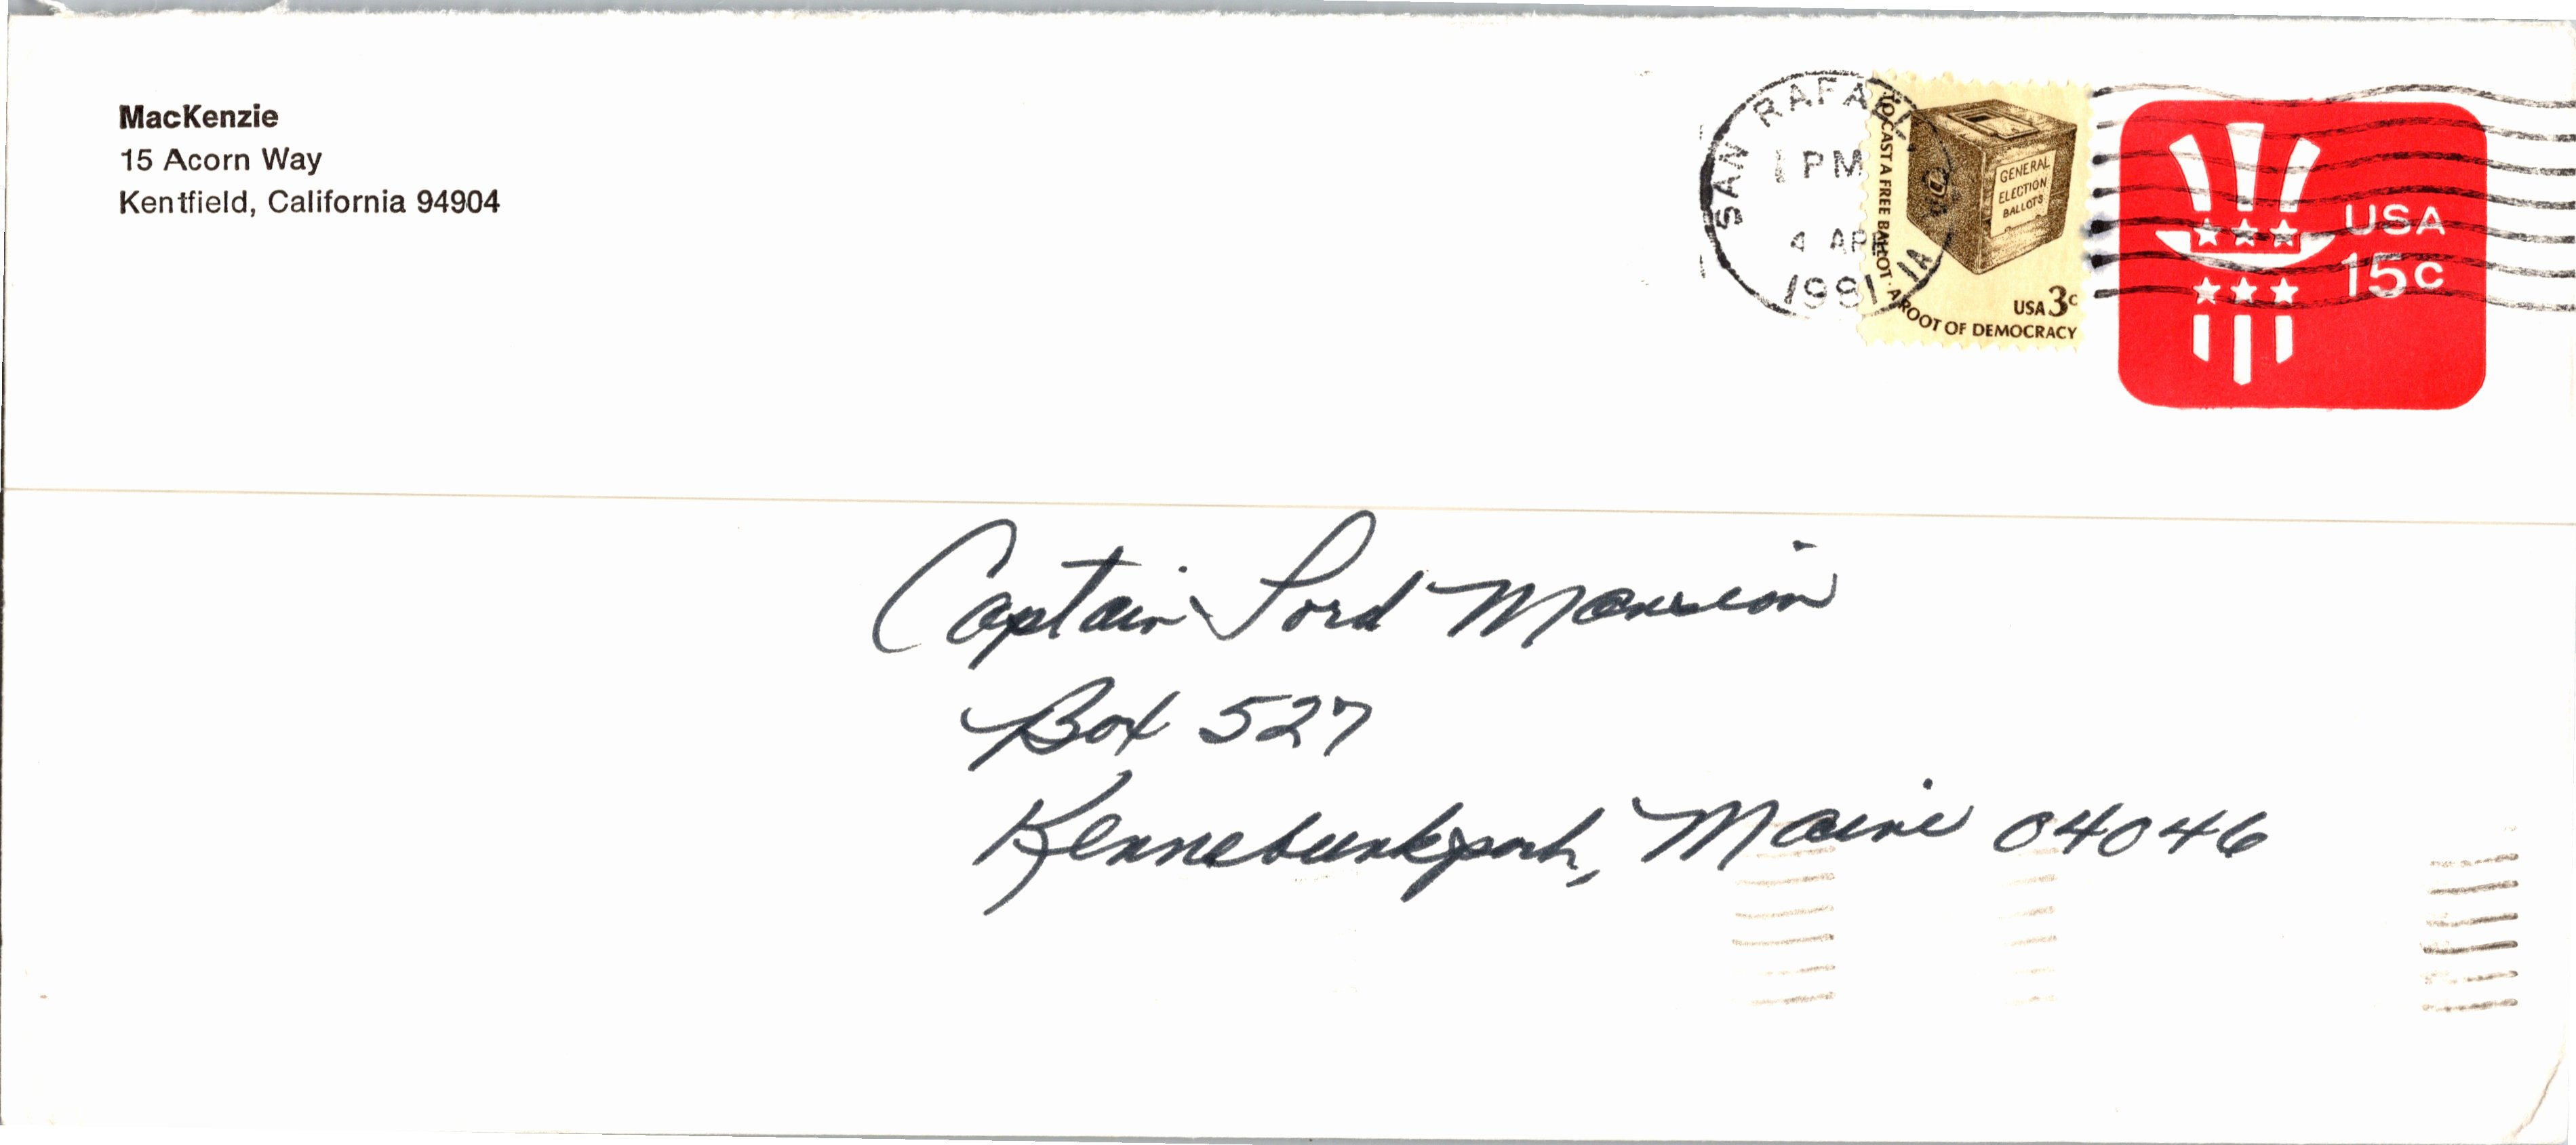 MacKenzie
15 Acorn Way
Kentfield, California 94904
SAN RAFAEL, CA
1 PM
4 AP
1981
TO CAST A FREE BALLOT · A ROOT OF DEMOCRACY
GENERAL
ELECTION
BALLOTS
USA 3c
USA
15c
Captain Lord Mansion
Box 527
Kennebunkport, Maine 04046